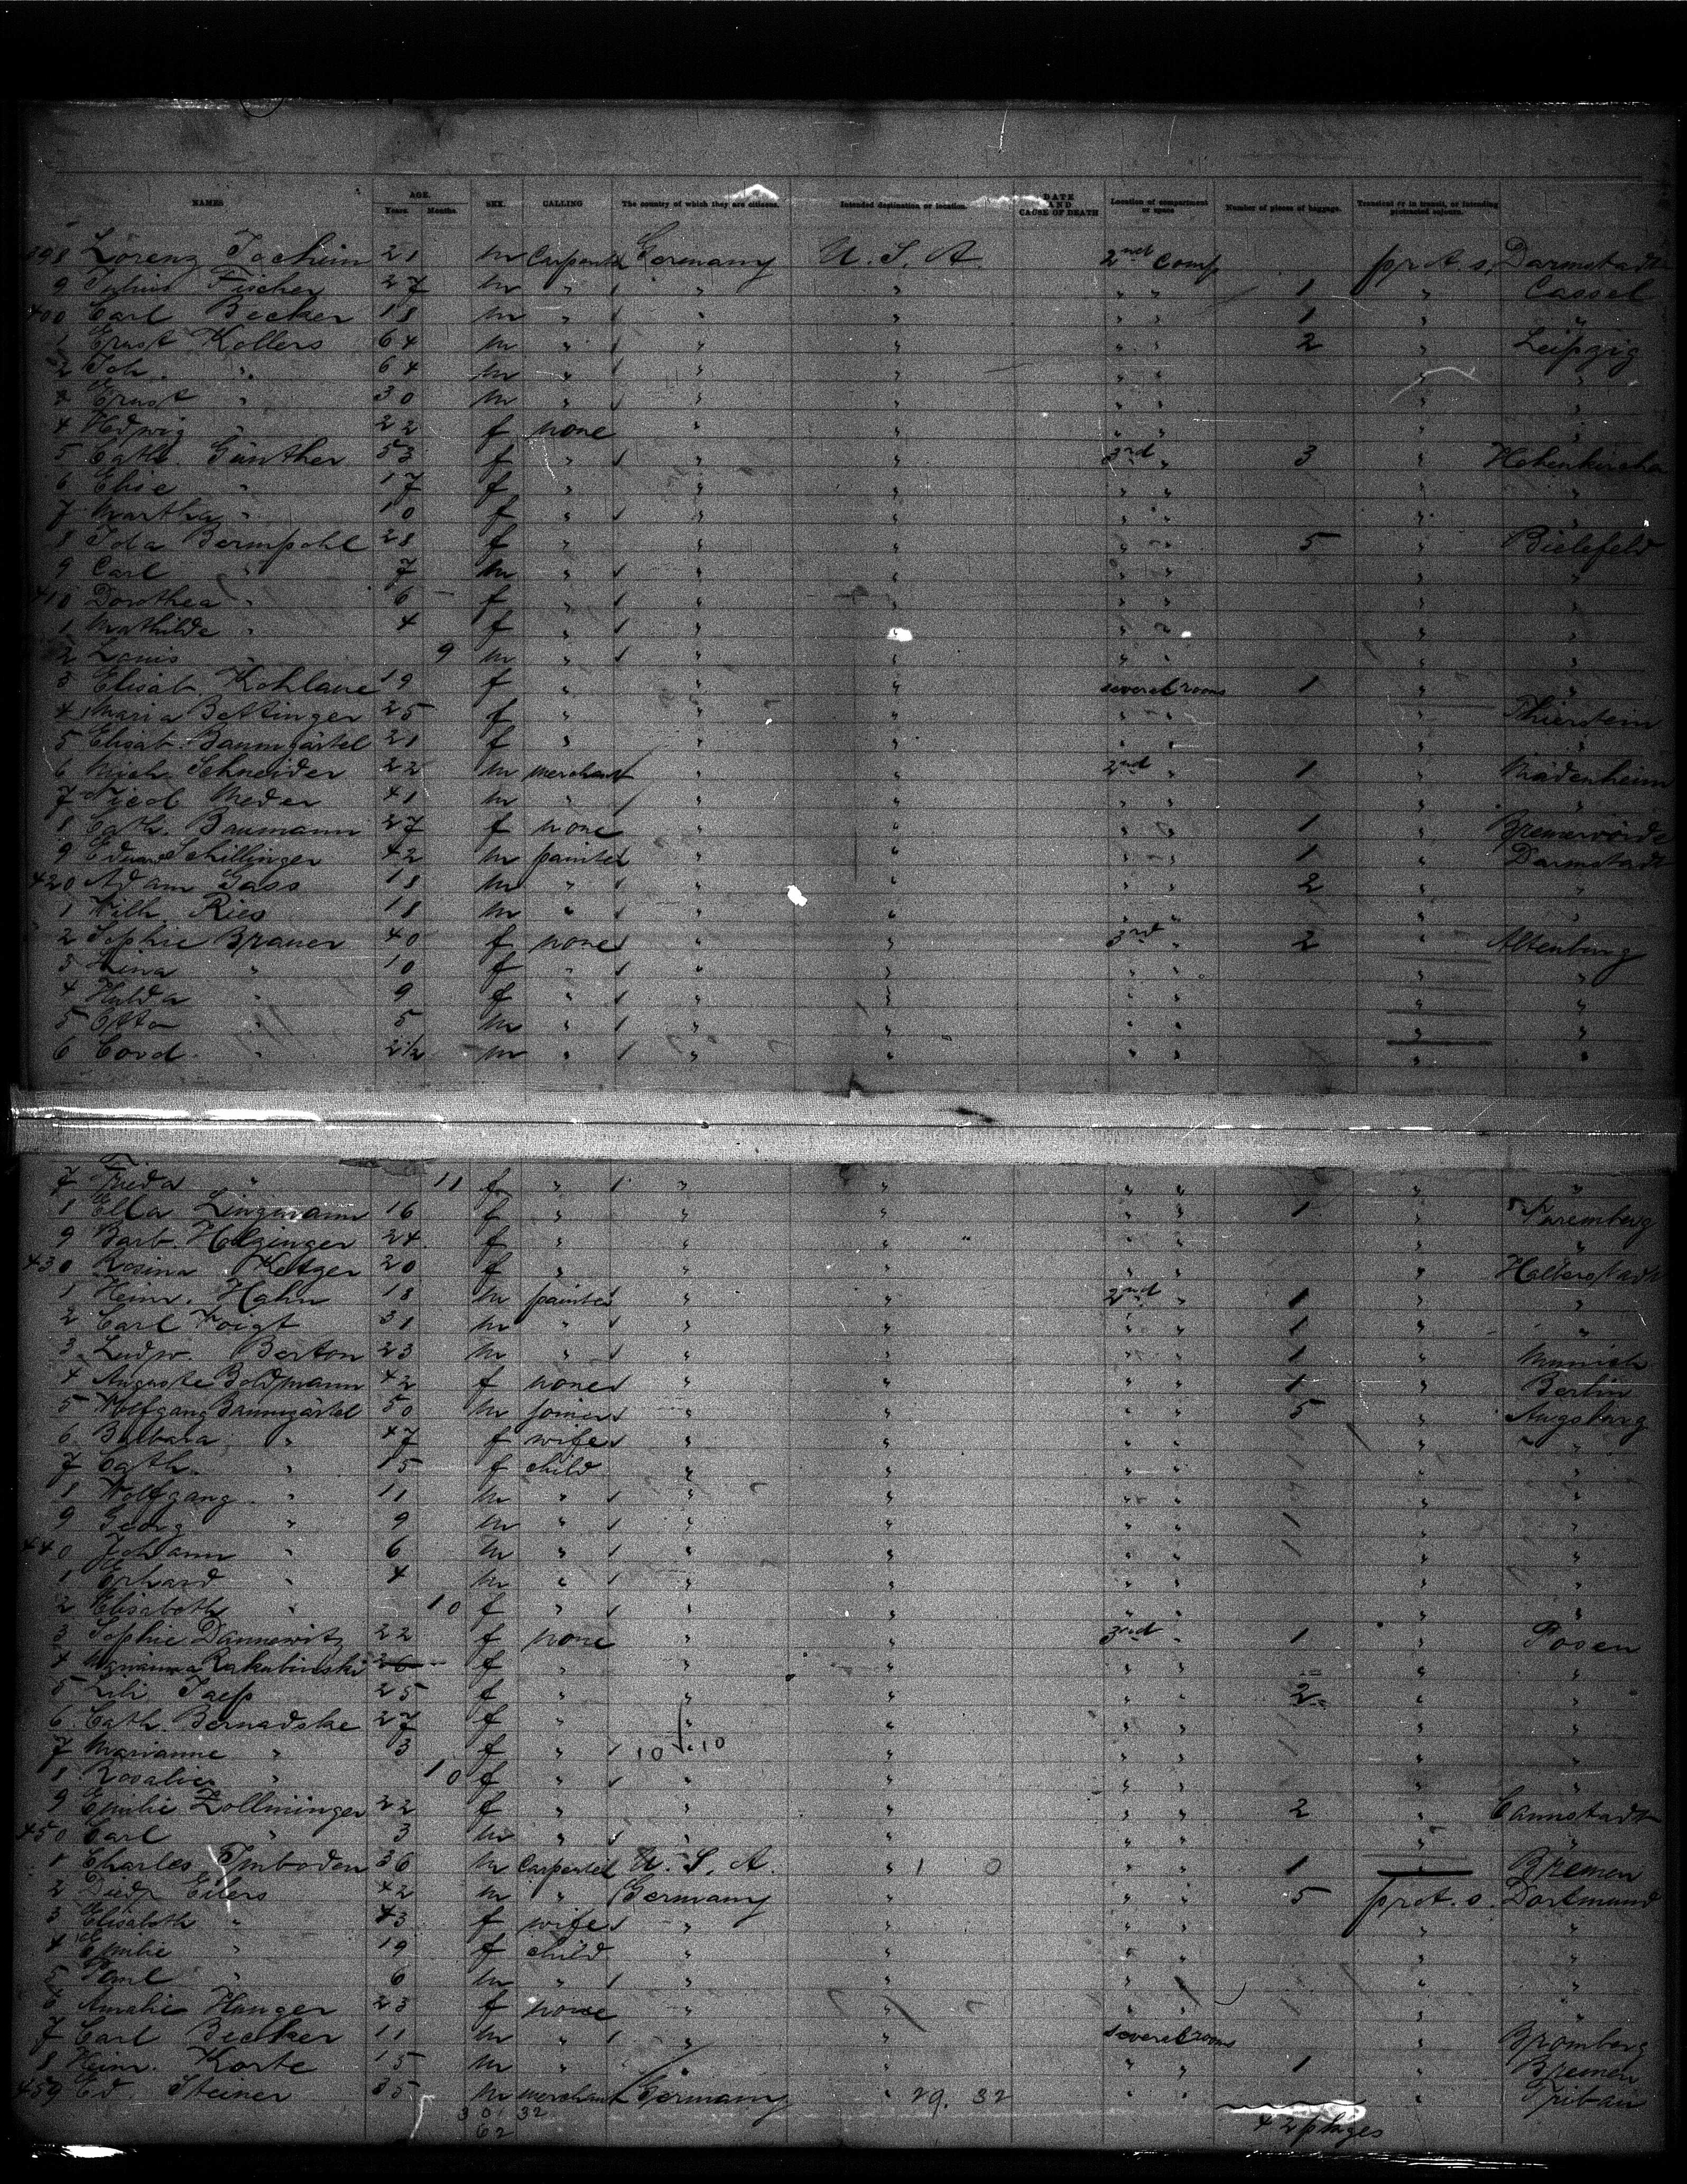 NAMES AGE. Years. Months. SEX. CALLING The country of which they are citizens. Intended destination or location. DATE AND CAUSE OF DEATH Location of compartment or space Number of pieces of baggage. Transient or in transit, or intending protracted sojourn.
398 Lorenz Jocheim 21 m Carpenter Germany U. S. A. 2nd Comp pr A. s. Darmstadt
9 Julius Fischer 27 m " " " " " 1 " Cassel
400 Carl Becker 18 m " " " " " 1 " "
1 Ernst Kollers 64 m " " " " " 2 " Leipzig
2 Joh. " 64 m " " " " " " "
3 Ernst " 30 m " " " " " " "
4 Hedwig " 22 f none " " " " " "
5 Cath. Günther 53 f " " " 3rd " 3 "
6 Elise " 17 f " " " " " " "
7 Martha " 10 f " " " " " " "
8 Ida Bermpohl 28 f " " " " " 5 " Bielefeld
9 Carl " 7 m " " " " " " "
410 Dorothea " 6 f " " " " " " "
1 Mathilde " 4 f " " " " " " "
2 Louis " 9 m " " " " " " "
3 Elisab. 19 f " " " several rooms 1 " "
4 Maria Bettinger 25 f " " " " " " Thierstein
5 Elisab. Baumgärtel 21 f " " " " " " "
6 Mich. Schneider 22 m merchant " " 2nd " 1 "
7 Nicol Meder 41 m " " " " " " "
8 Cath. Baumann 27 f none " " " " 1 " Bremervörde
9 Eduard Schillinger 42 m painter " " " " 1 " Darmstadt
420 Adam Gass 18 m " " " " " 2 " "
1 Wilh. Ries 18 m " " " " " " "
2 Sophie Brauer 40 f none " " 3rd " 2 " Altenburg
3 Lina " 10 f " " " " " " "
4 Hulda " 9 f " " " " " " "
5 Otto " 5 m " " " " " " "
6 Cord. " 2½ m " " " " " " "
7 Frieda " 11 f " " " " " " "
8 Ella Lingmann 16 f " " " " " 1 " Nuremberg
9 Barb. 24 f " " " " " " "
430 Rosina Ketzer 20 f " " " " " " Halberstadt
1 Heinr. Hahn 18 m painter " " 2nd " 1 " "
2 Carl Voigt 31 m " " " " " 1 " "
3 Ludw. Berton 23 m " " " " " 1 " Munich
4 Auguste Boldmann 42 f none " " " " 1 " Berlin
5 Wolfgang Baumgärtel 50 m joiner " " " " 5 " Augsburg
6 Barbara " 47 f wife " " " " " "
7 Cath. " 15 f child " " " " " "
8 Wolfgang " 11 m " " " " " " "
9 Georg " 9 m " " " " " " "
440 Johann " 6 m " " " " " " "
1 Erhard " 4 m " " " " " " "
2 Elisabeth " 10 f " " " " " " "
3 Sophie Dannewitz 22 f none " " 3rd " 1 " Posen
4 Marianna 26 f " " " " " " "
5 Lili 25 f " " " " " 2 " "
6 Cath. Bernadske 27 f " " " " " " "
7 Marianne " 3 f " 10 10 " " " " "
8 Rosalie " 10 f " " " " " " "
9 Emilie Zollminger 22 f " " " " " 2 " Cannstadt
450 Carl " 3 m " " " " " " "
1 Charles Imboden 36 m Carpenter U. S. A. " 1 0 " " 1 " Bremen
2 Diedr. Eilers 42 m " Germany " " " 5 pr A. s. Dortmund
3 Elisabeth " 43 f wife " " " " " "
4 Emilie " 19 f child " " " " " "
5 Paul " 6 m " " " " " " "
6 Amalie Hunger 23 f none " " " " " "
7 Carl Becker 11 m " " " several rooms " Bromberg
8 Heinr. Korte 15 m " " " " " 1 " Bremen
459 Ed. Steiner 35 m merchant Germany " 29. 32 " " "
30 32
62
42 pkages